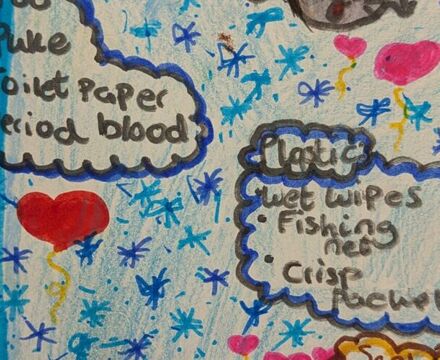 Puke
Toilet Paper
Period blood
Plastic
Wet wipes
Fishing
net
Crisp
Packet